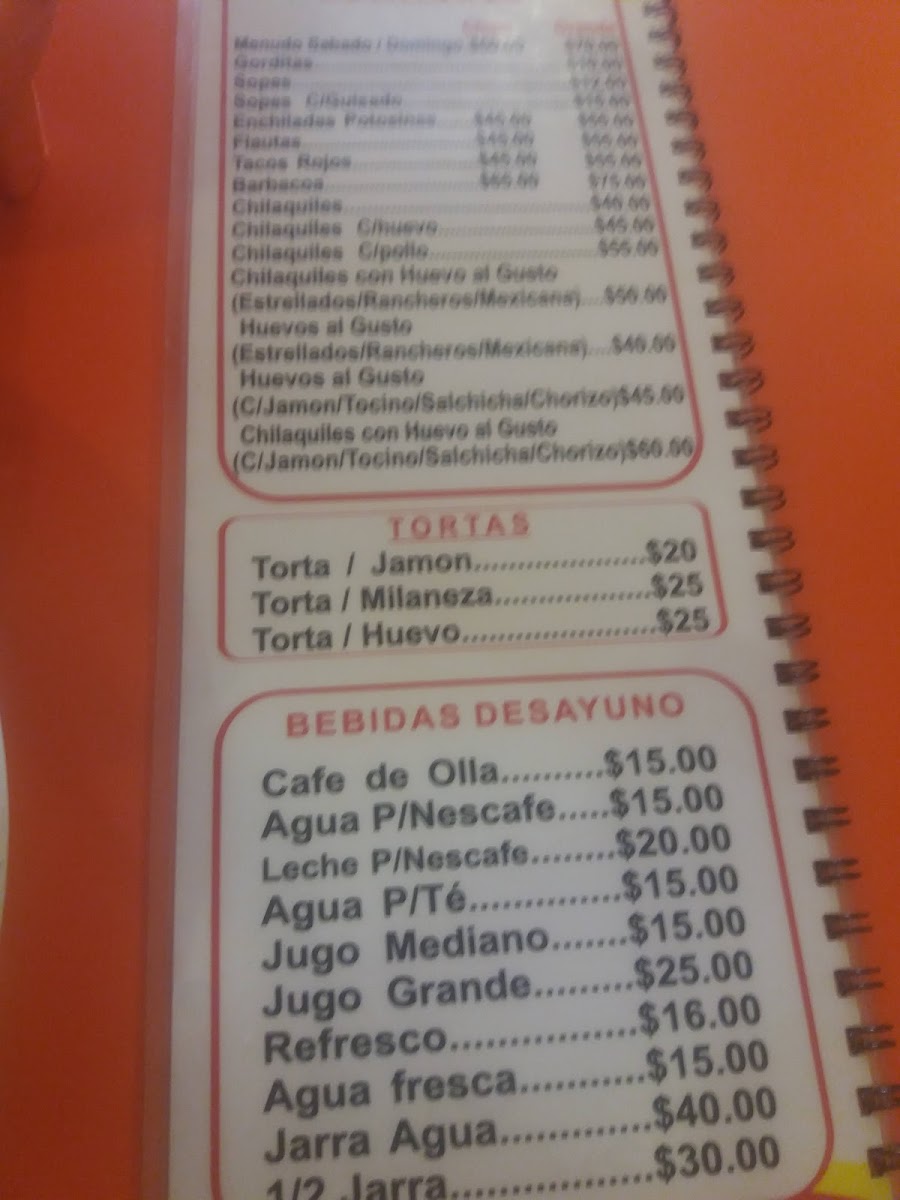 Menudo Sabado / Domingo $60.00 $70.00
Gorditas
Sopes
Sopes C/Guisado
Enchiladas Potosinas $45.00 $55.00
Flautas $45.00 $55.00
Tacos Rojos $45.00 $55.00
Barbacoa $65.00 $75.00
Chilaquiles $40.00
Chilaquiles C/huevo $45.00
Chilaquiles C/pollo $55.00
Chilaquiles con Huevo al Gusto
(Estrellados/Rancheros/Mexicana)....$50.00
Huevos al Gusto
(Estrellados/Rancheros/Mexicana)....$40.00
Huevos al Gusto
(C/Jamon/Tocino/Salchicha/Chorizo)$45.00
Chilaquiles con Huevo al Gusto
(C/Jamon/Tocino/Salchicha/Chorizo)$60.00
TORTAS
Torta / Jamon....................$20
Torta / Milaneza..................$25
Torta / Huevo.......................$25
BEBIDAS DESAYUNO
Cafe de Olla..........$15.00
Agua P/Nescafe.....$15.00
Leche P/Nescafe........$20.00
Agua P/Té..............$15.00
Jugo Mediano.......$15.00
Jugo Grande.........$25.00
Refresco.................$16.00
Agua fresca...........$15.00
Jarra Agua.............$40.00
1/2 Jarra.................$30.00